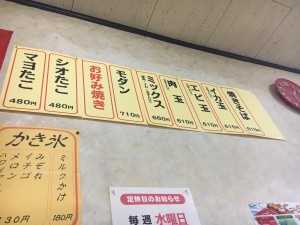 マヨたこ
480円
シオたこ
480円
お好み焼き
モダン
710円
ミックス
660円
肉玉
610円
エビ玉
610円
イカ玉
610円
焼きそば
510円
かき氷
ミルクかけ
180円
みぞれ
イチゴ
メロン
130円
定休日のお知らせ
毎週 水曜日